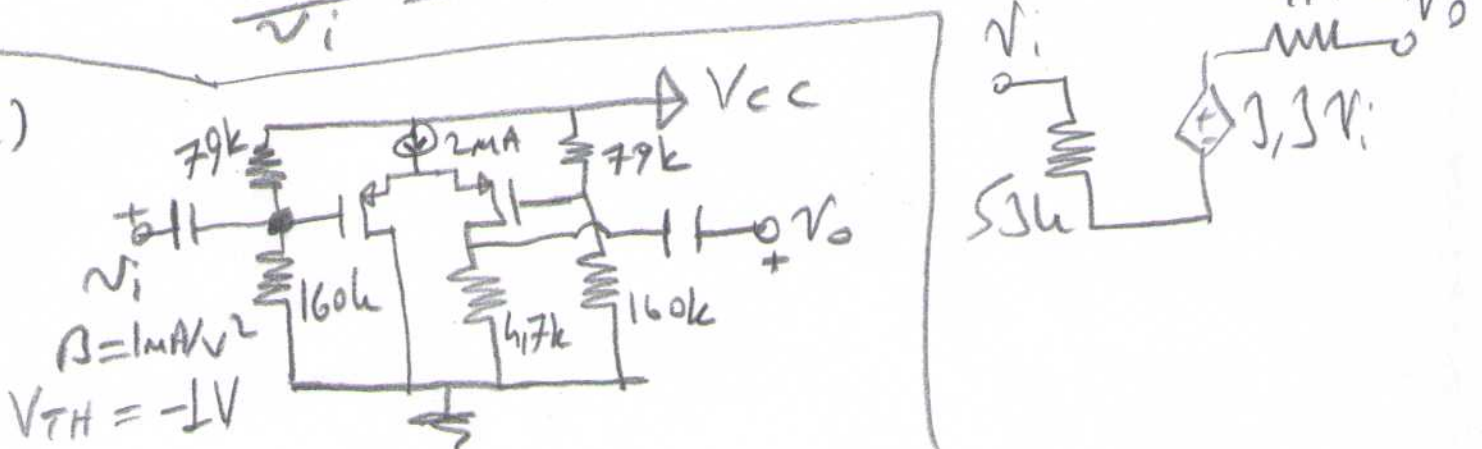 vi
)
VCC
79k
2mA
79k
+
vi
Vo
+
160k
4,7k
160k
β=1mA/V²
VTH = -1V
Vi
Vo
+
3,3Vi
53k